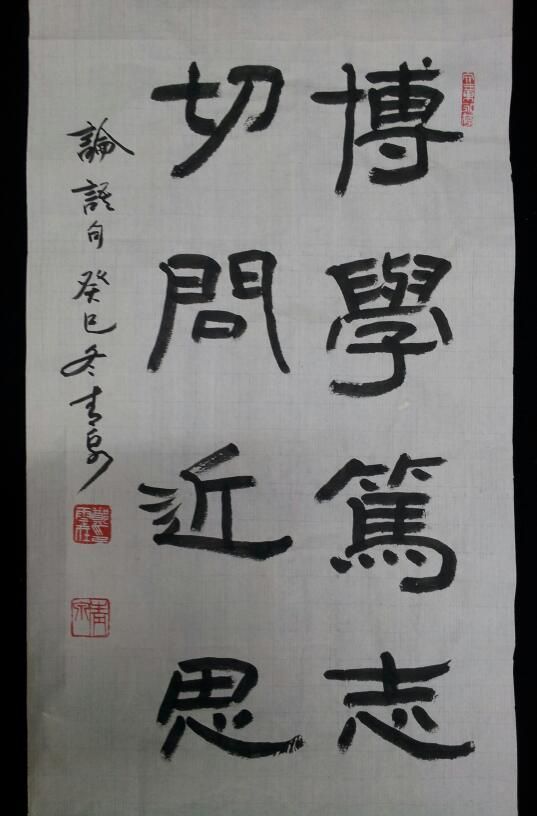 博學篤志
切問近思
論語句 癸巳冬 青泉